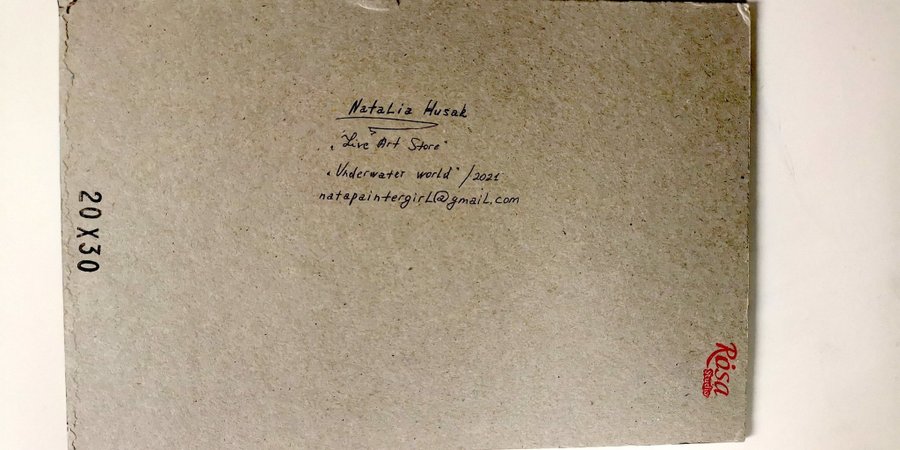 Natalia Husak
"Live Art Store"
"Underwater world" /2021
natapaintergirl@gmail.com
20X30
Rosa
Studio